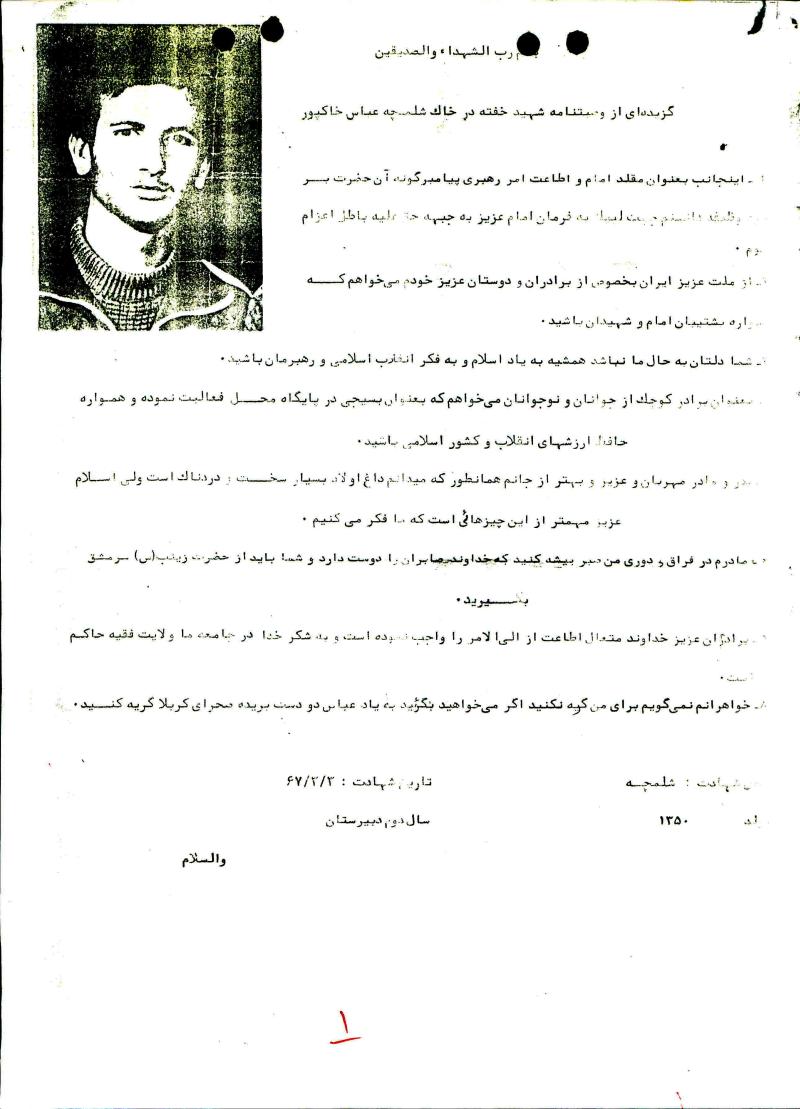 رب الشهداء والصدیقین
گزیده‌ای از وصیتنامه شهید خفته در خاك شلمچه عباس خاکپور
ـ اینجانب بعنوان مقلد امام و اطاعت امر رهبری پیامبرگونه آن حضرت بـــر
وظیفه دانستم جهت لبیك به فرمان امام عزیز به جبهه حق علیه باطل اعزام
ـ از ملت عزیز ایران بخصوص از برادران و دوستان عزیز خودم می‌خواهم کـــــه
پشتیبان امام و شهیدان باشید.
ـ شما دلتان به حال ما نباشد همشیه به یاد اسلام و به فکر انقلاب اسلامی و رهبرمان باشید.
بعنوان برادر کوچك از جوانان و نوجوانان می‌خواهم که بعنوان بسیجی در پایگاه محـــل فعالیت نموده و همواره
حافظ ارزشهای انقلاب و کشور اسلامی باشید.
و مادر مهربان و عزیر و بهتر از جانم همانطور که میدانم داغ اولاد بسیار سخـــت و دردناك است ولی اسـلام
عزیز مهمتر از این چیزهائی است که ما فکر می کنیم.
مادرم در فراق و دوری من صبر پیشه کنید که خداوند صابران را دوست دارد و شما باید از حضرت زینب(س) سرمشق
بگـــــیرید.
برادران عزیز خداوند متعال اطاعت از الی الامر را واجب نموده است و به شکر خدا در جامعه ما ولایت فقیه حاکم
است.
۸ـ خواهرانم نمی‌گویم برای من گیه نکنید اگر می‌خواهید بگرئید به یاد عباس دو دست بریده صحرای کربلا گریه کنــید.
شهادت : شلمچـه
تاریخ شهادت : ۶۷/۳/۳
۱۳۵۰
سال دوم دبیرستان
والسلام
۱